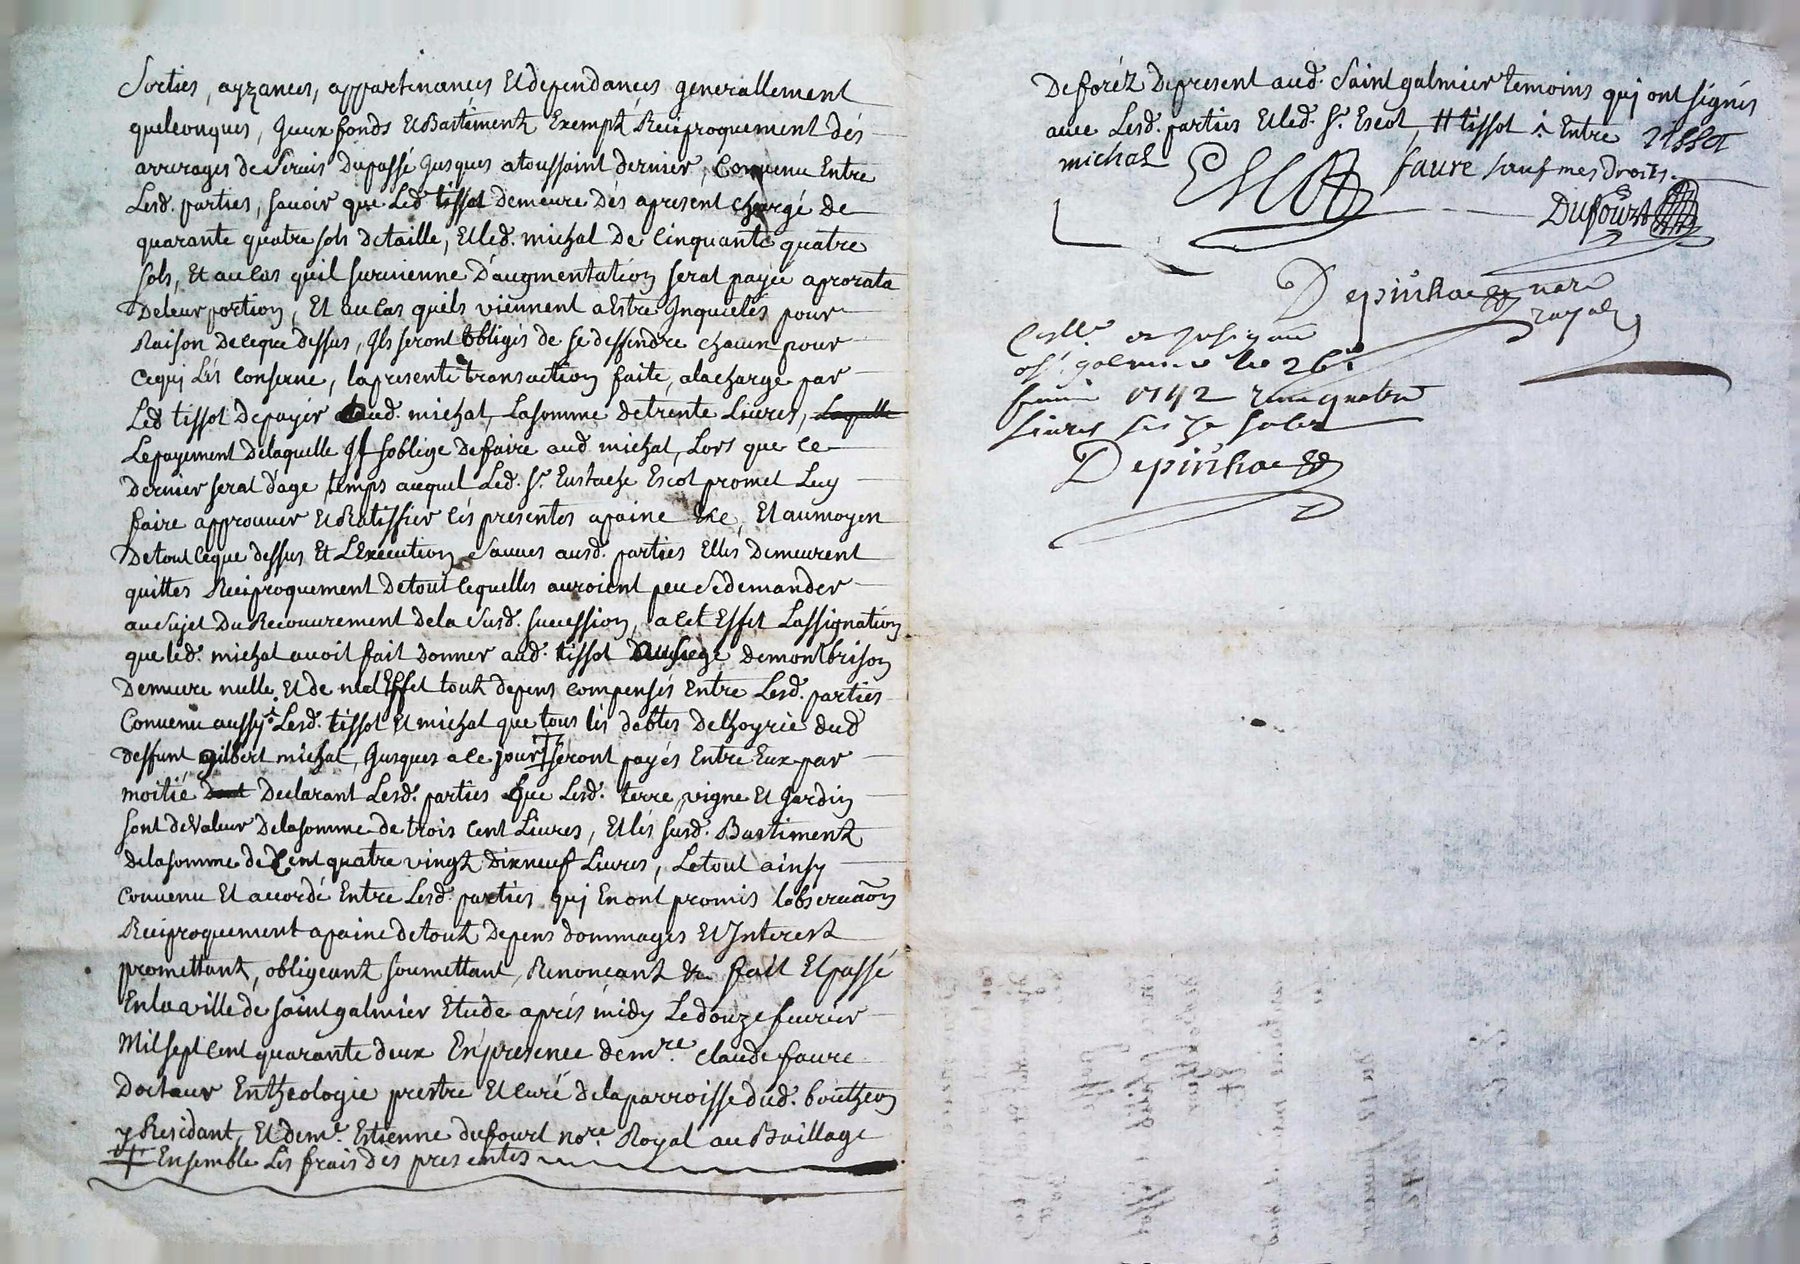 Sorties, ayzances, appartenances Et dependances generallement
quelconques, Iceux fonds Et Bastiments Exempts Reciproquement des
arrerages de Servis Du passé Jusques a toussaint dernier, Convenu Entre
Lesd. parties, scavoir que Led tissot Demeure Dés apresent chargé de
quarante quatre sols de taille, Et led. michal De Cinquante quatre
sols, Et au Cas quil survienne D'augmentation serat payée a prorata
De leur portion, Et au Cas quils viennent a Estre Inquietés pour
Raison De ce que dessus, Ils seront obligés de se deffendre chacun pour
Ce qui Les Conserne, la presente transaction faite, a la charge par
Led tissot De payer aud. michal, La somme de trente Livres, Laquelle
Le payement De laquelle Il soblige De faire aud michal, Lors que ce
Dernier serat d'age temps auquel Led. Sr. Eustache Escot promet Luy
faire approuver Et Ratiffier les presentes a paine &ce, Et au moyen
De tout Ce que dessus Et L'Execution sauves ausd. parties Elles Demeurent
quittes Reciproquement De tout Ce quelles auroient peu se demander
au Sujet Du Recouvrement de la Susd. succession, a Cet Effet Lassignation
que led. michal avoit fait donner aud. tissot au siege de montbrison
Demeure nulle Et de nul Effet tout depens compensés Entre Lesd. parties
Convenu aussy Lesd. tissot Et michal que tous les debtes De l'hoyrie dud
deffunt gilbert michal, Jusques a ce jour seront payés Entre Eux par
moitié Dont Declarant Lesd. parties Que Lesd. terre, vigne Et Jardin
sont de Valeur De la somme de trois Cent Livres, Et les susd. Bastiments
de la somme de Cent quatre vingt Dix neuf Livres, Le tout ainsy
Convenu Et accordé Entre Lesd. parties qui En ont promis lobservaõn
Reciproquement a paine de touts Depens dommages Et Interest
promettant, obligeant soumettant, Renonçant & fait Et passé
En la ville de saint galmier Etude aprés midy Le douze fevrier
Mil sept Cent quarante deux En presence de mre. Claude faure
Docteur En theologie prestre Et Curé de la parroisse dud. bouthéon
y Residant, Et de me. Estienne dufourt nore. Royal au Baillage
Ensemble Les frais des presentes
De foréz De present aud. Saint galmier temoins qui ont signés
avec Lesd. parties Et led. Sr. Escot, tissot Entre tisst
michal Escot faure sauf mes droits.
Dufourt
Depinhac nore
royal
à St. galmier le 26
1742
livres
Depinhac